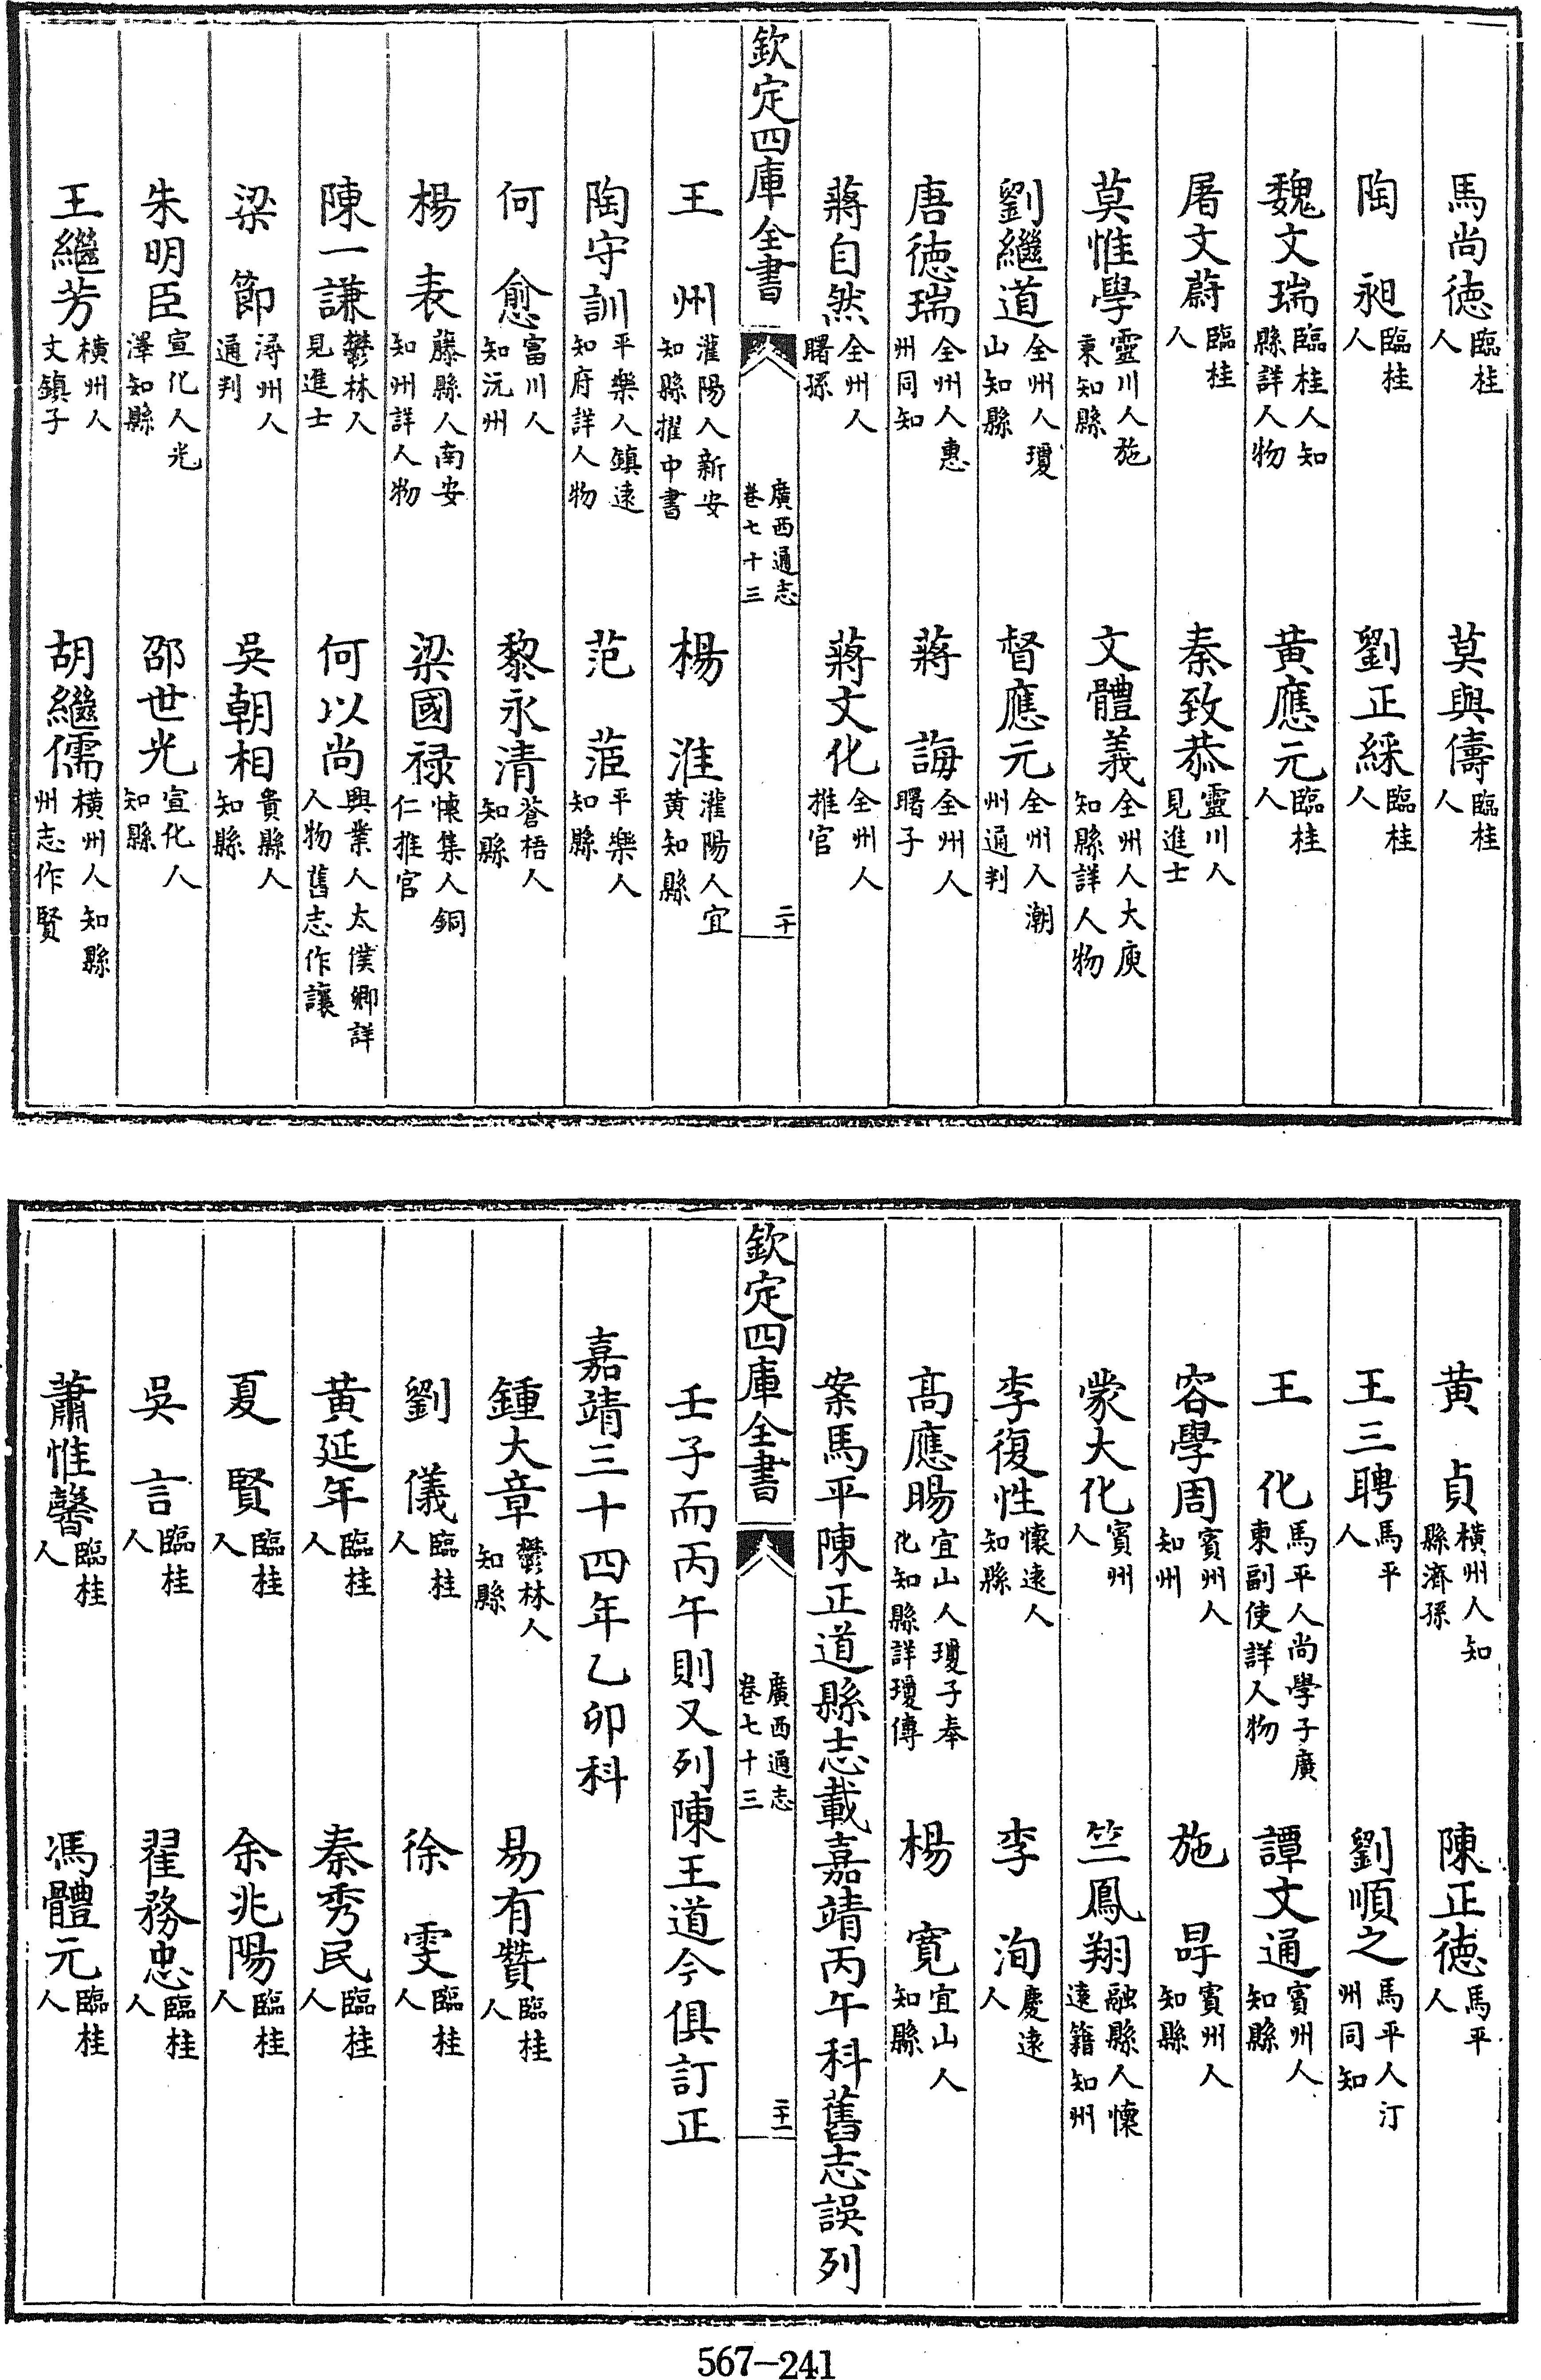 馬尚德臨桂人　莫與儔臨桂人
陶昶臨桂人　劉正綵臨桂人
魏文瑞臨桂人知縣詳人物　黃應元臨桂人
屠文蔚臨桂人　秦致恭靈川人見進士
莫惟學靈川人施秉知縣　文體義全州人大庾知縣詳人物
劉繼道全州人瓊山知縣　督應元全州人潮州通判
唐德瑞全州人惠州同知　蔣誨全州人曙子
蔣自然全州人曙孫　蔣文化全州人推官
欽定四庫全書　廣西通志卷七十三　二十
王州灌陽人新安知縣擢中書　楊淮灌陽人宜黃知縣
陶守訓平樂人鎮遠知府詳人物　范菃平樂人知縣
何愈富川人知沅州　黎永清蒼梧人知縣
楊表藤縣人南安知州詳人物　梁國祿懷集人銅仁推官
陳一謙鬱林人見進士　何以尚興業人太僕卿詳人物舊志作讓
梁節潯州人通判　吳朝相貴縣人知縣
朱明臣宣化人光澤知縣　邵世光宣化人知縣
王繼芳橫州人文鎮子　胡繼儒橫州人知縣州志作賢
黃貞橫州人知縣濟孫　陳正德馬平人
王三聘馬平人　劉順之馬平人汀州同知
王化馬平人尚學子廣東副使詳人物　譚文通賓州人知縣
容學周賓州人知州　施㝵賓州人知縣
蒙大化賓州人　竺鳳翔融縣人懷遠籍知州
李復性懷遠人知縣　李洵慶遠人
高應暘宜山人瓊子奉化知縣詳瓊傳　楊寬宜山人知縣
案馬平陳正道縣志載嘉靖丙午科舊志誤列
欽定四庫全書　廣西通志卷七十三　二十一
壬子而丙午則又列陳王道今俱訂正
嘉靖三十四年乙卯科
鍾大章鬱林人知縣　易有贊臨桂人
劉儀臨桂人　徐雯臨桂人
黃延年臨桂人　秦秀民臨桂人
夏賢臨桂人　余兆陽臨桂人
吳言臨桂人　翟務忠臨桂人
蕭惟馨臨桂人　馮體元臨桂人
567-241